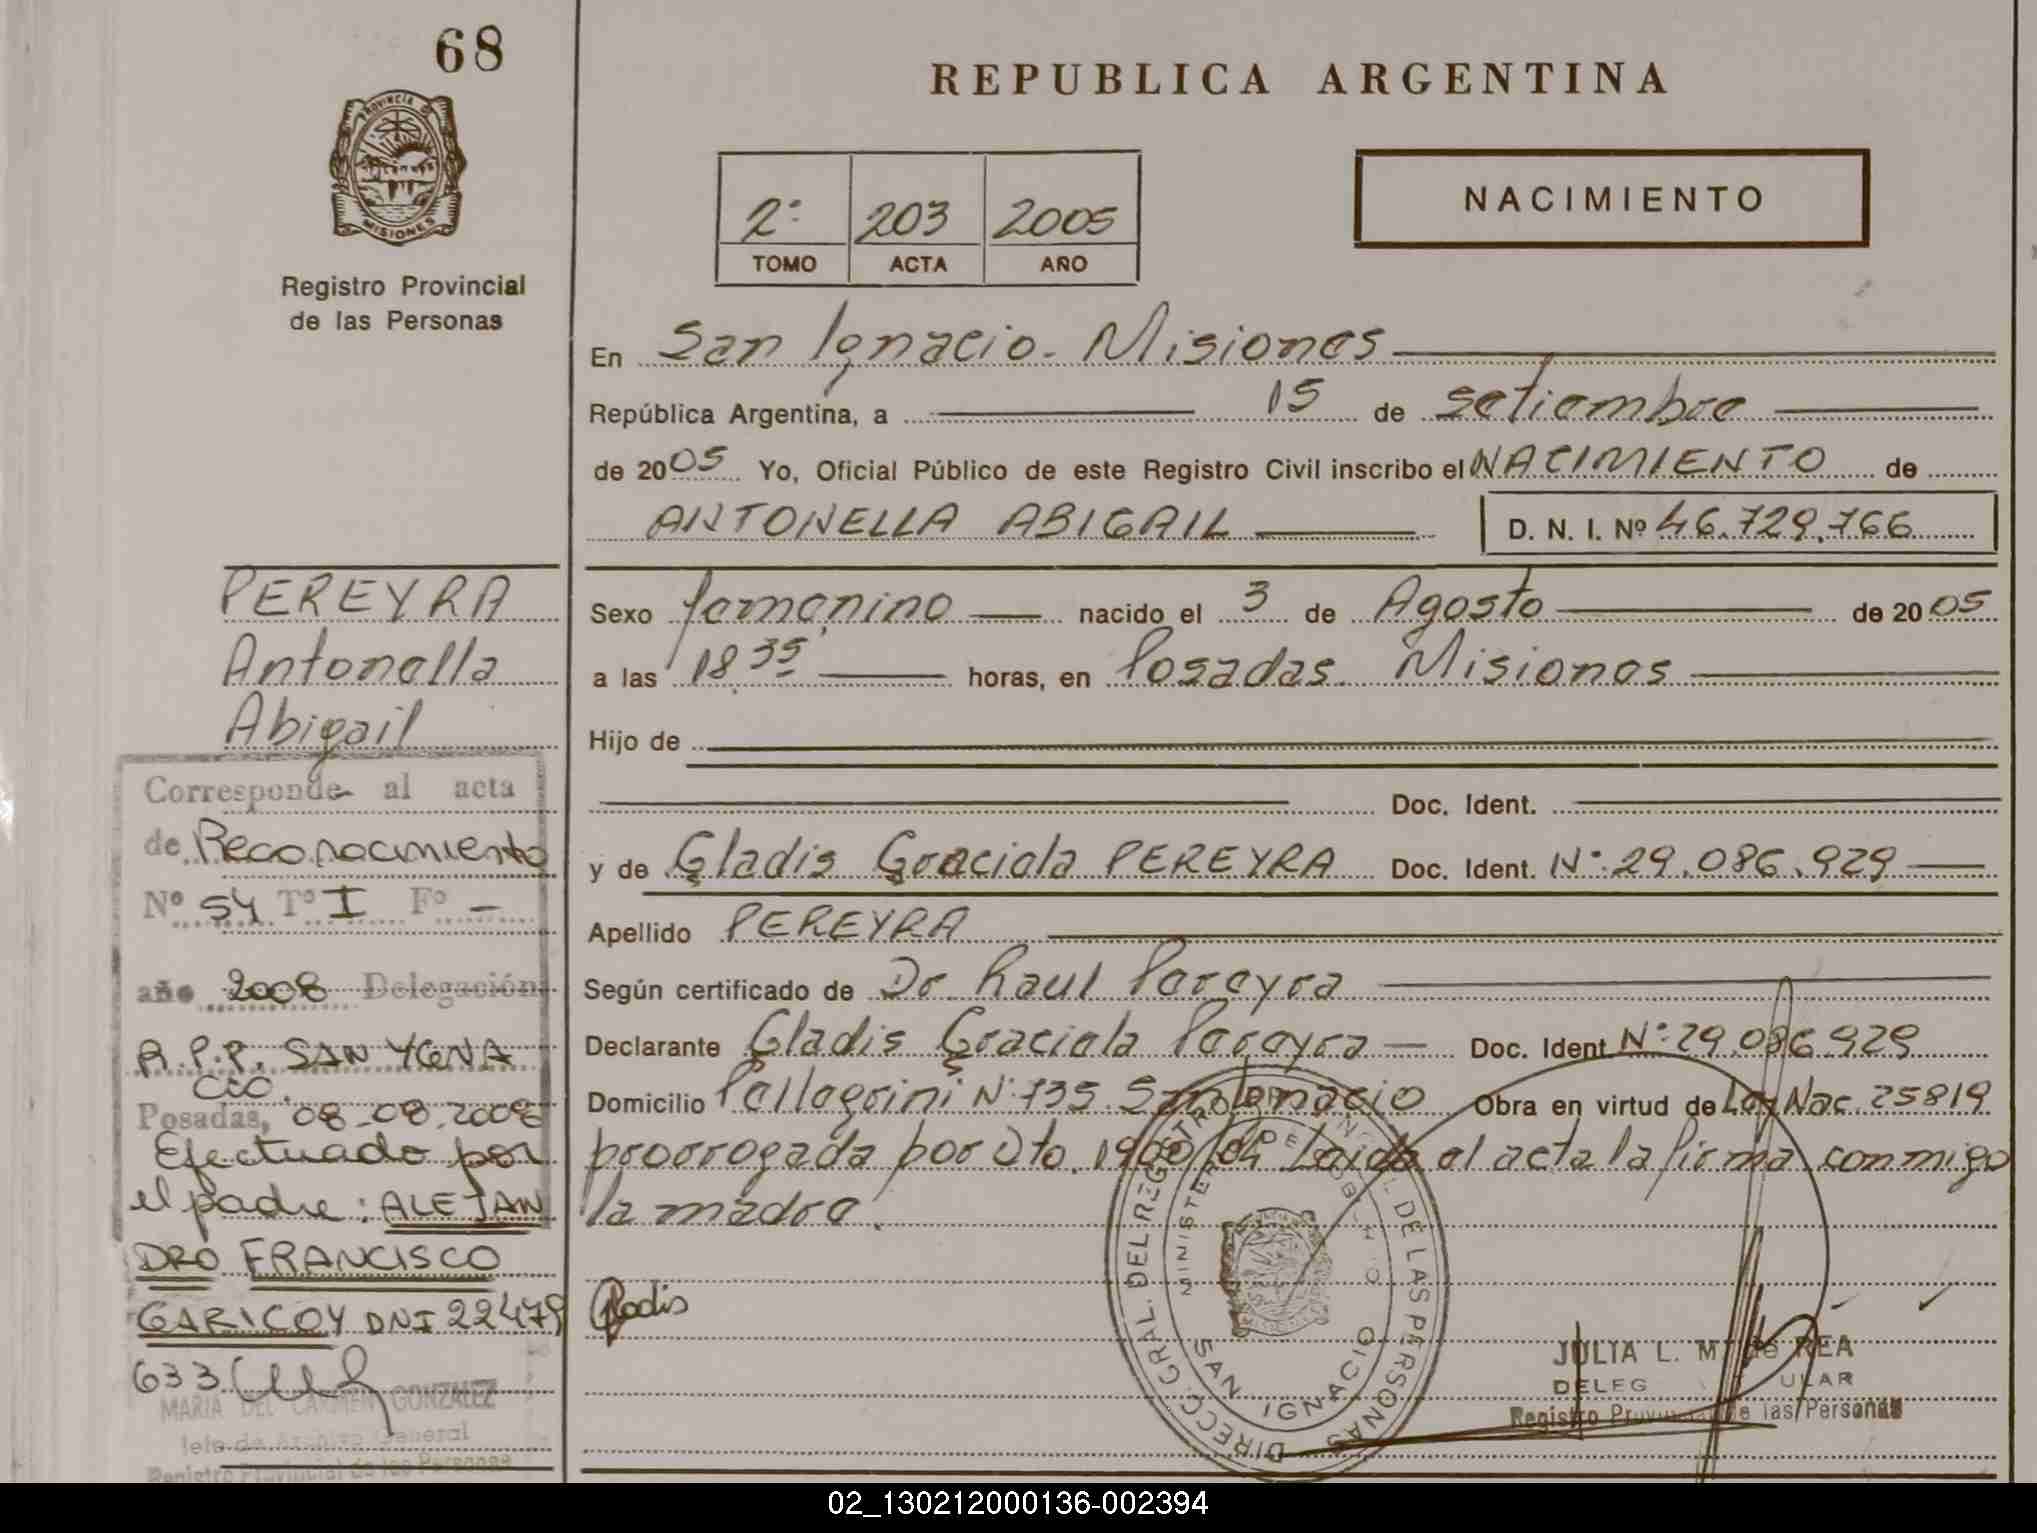 68
PROVINCIA DE
MISIONES
Registro Provincial
de las Personas
REPUBLICA ARGENTINA
2º 203 2005
TOMO ACTA AÑO
NACIMIENTO
En San Ignacio - Misiones
República Argentina, a 15 de setiembre
de 2005 Yo, Oficial Público de este Registro Civil inscribo el NACIMIENTO de
ANTONELLA ABIGAIL D. N. I. Nº 46.729.766
Sexo femenino nacido el 3 de Agosto de 2005
a las 18,35 horas, en Posadas. Misiones
Hijo de
Doc. Ident.
y de Gladis Graciela PEREYRA Doc. Ident. Nº 29.086.929
Apellido PEREYRA
Según certificado de Dr. Raul Pereyra
Declarante Gladis Graciela Pereyra Doc. Ident. Nº 29.086.929
Domicilio Pellegrini Nº 735. San Ignacio Obra en virtud de Ley Nac. 25819
prorrogada por Dto. 1900/04 Leida el acta la firma conmigo
la madre.
PEREYRA
Antonella
Abigail
Corresponde al acta
de Reconocimiento
Nº 54 Tº I Fº -
año 2008 Delegación
R.P.P. SAN YGNA
CIO.
Posadas, 08-08-2008
Efectuado por
el padre: ALEJAN
DRO FRANCISCO
GARICOY DNI 22479
633
MARIA DEL CARMEN GONZALEZ
Jefe de Archivo General
Registro Provincial de las Personas
DIRECC. GRAL. DEL REGISTRO PROVINCIAL DE LAS PERSONAS
SAN IGNACIO
JULIA L. M. de REA
Registro Provincial de las Personas
02_130212000136-002394